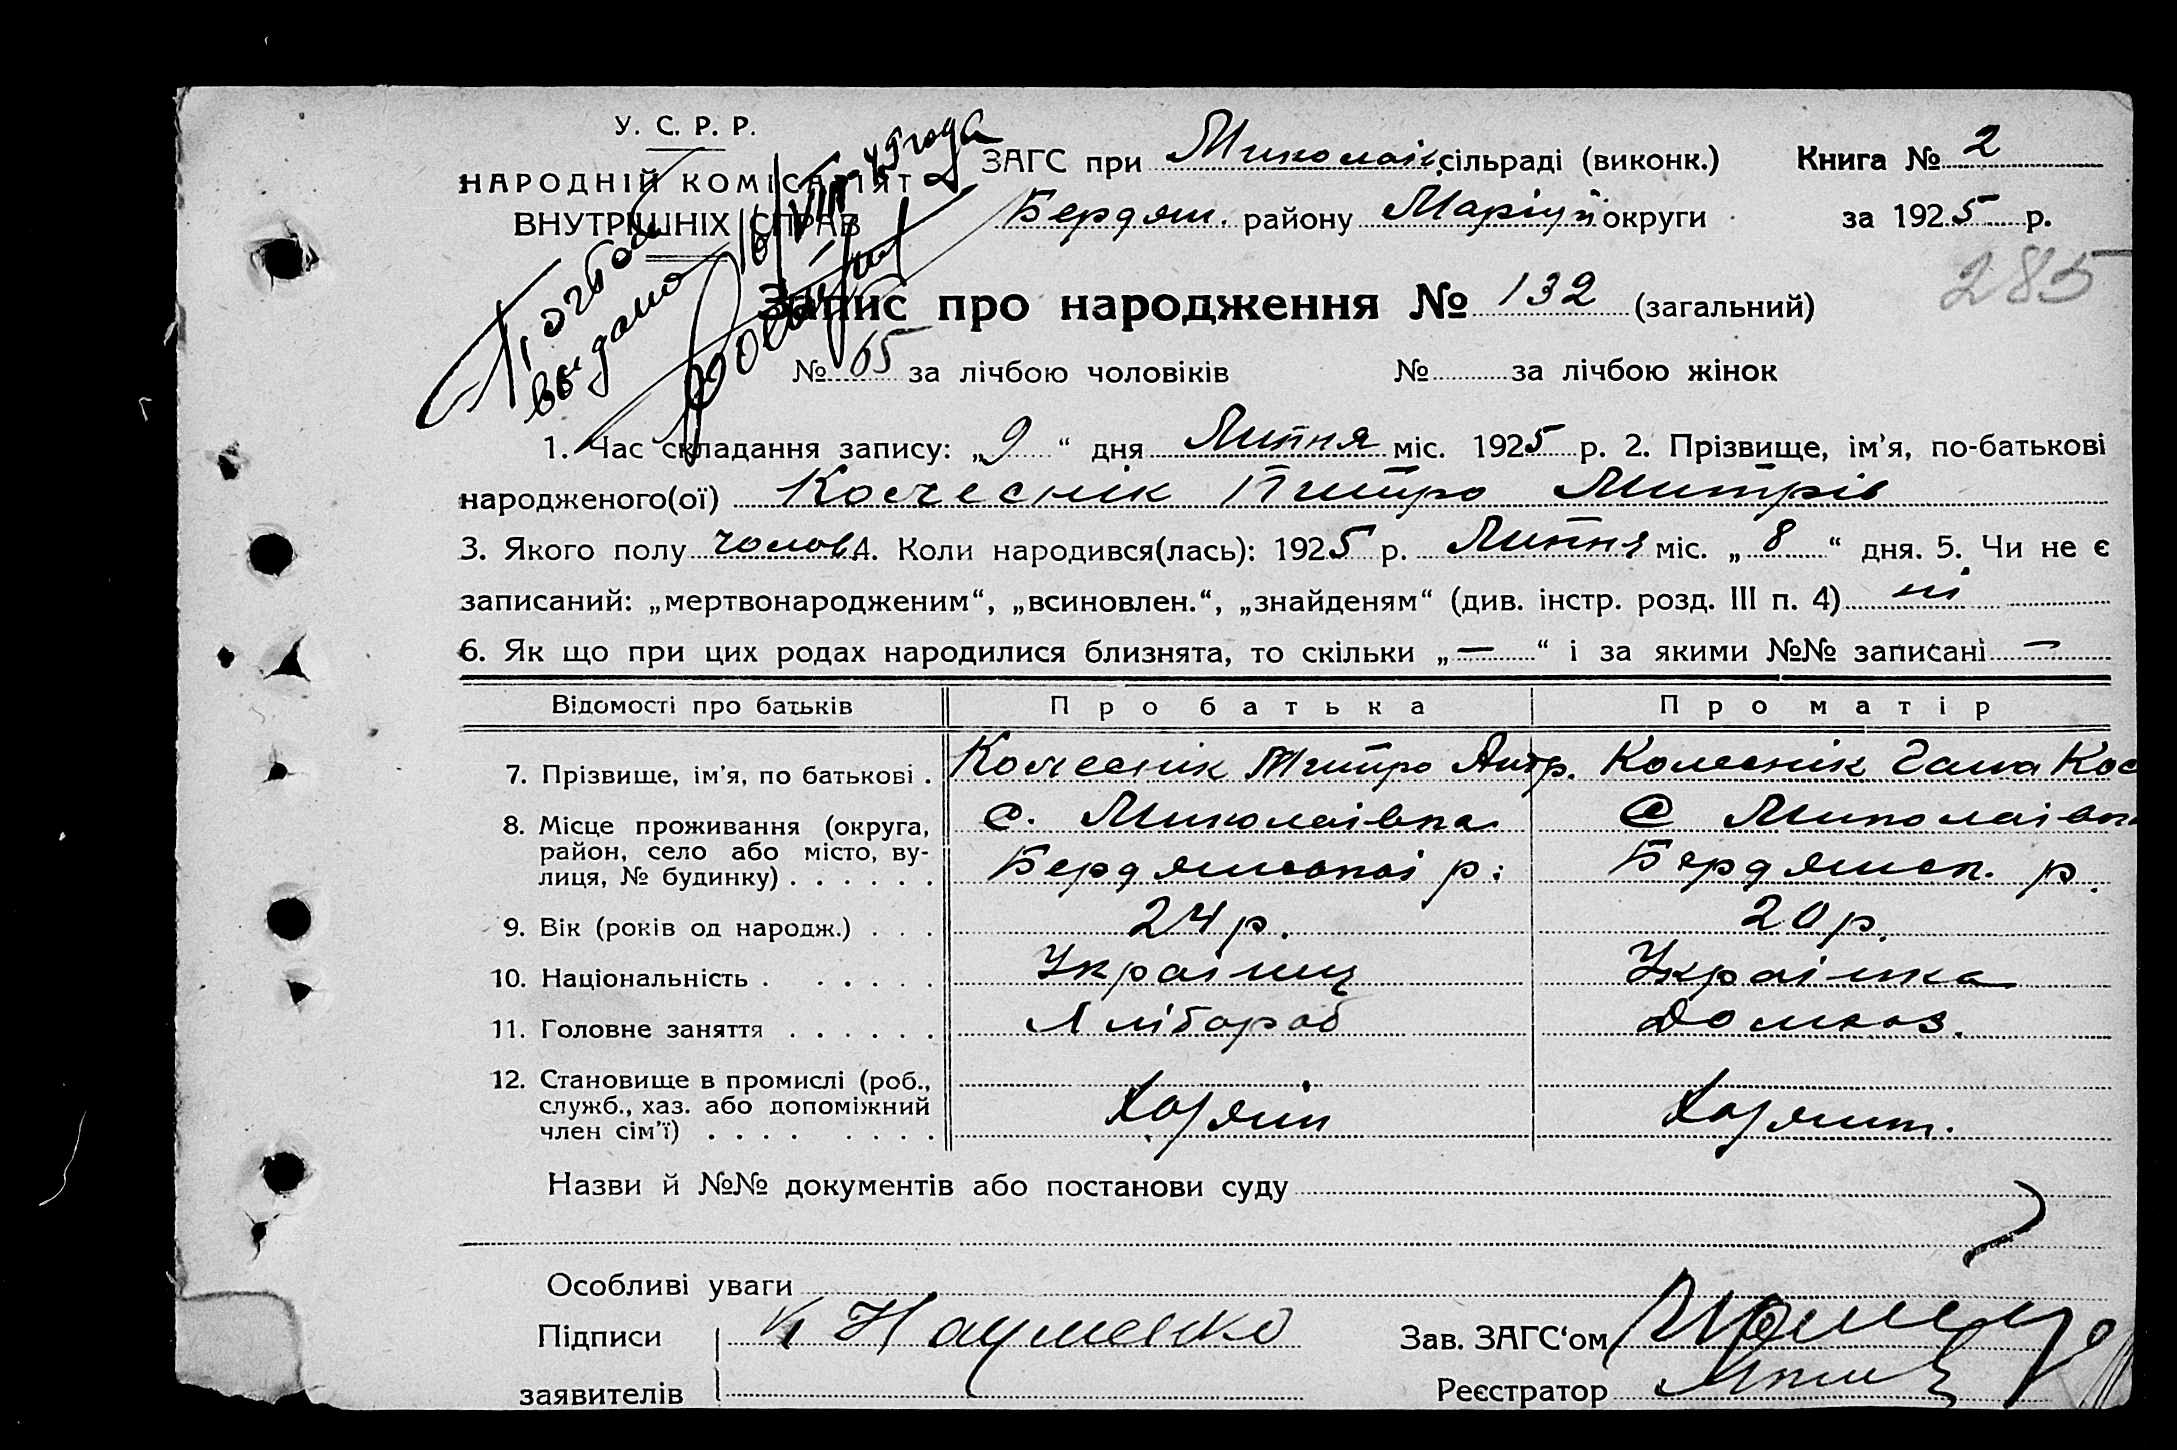 У. С. Р. Р.
НАРОДНІЙ КОМІСАРІЯТ
ВНУТРІШНІХ СПРАВ
выдано 16/VIII 49 года
ЗАГС при Миколаїв. сільраді (виконк.) Книга № 2
Бердян. району Маріуп. округи за 1925 р.
285
Запис про народження № 132 (загальний)
№ 65 за лічбою чоловіків № за лічбою жінок
1. Час складання запису: „9“ дня Липня міс. 1925 р. 2. Прізвище, ім’я, по-батькові
народженого(ої) Колеснік Питро Митрів
3. Якого полу чолов. 4. Коли народився(лась): 1925 р. Липня міс. „8“ дня. 5. Чи не є
записаний: „мертвонародженим“, „всиновлен.“, „знайденям“ (див. інстр. розд. III п. 4) ні
6. Як що при цих родах народилися близнята, то скільки „—“ і за якими №№ записані —
Відомості про батьків Про батька Про матір
7. Прізвище, ім’я, по батькові . Колеснік Митро Колеснік Кос
8. Місце проживання (округа, с. Миколаівка С Миколаівка
район, село або місто, ву-
лиця, № будинку) . . . . . . Бердянської р. Бердянск. р.
9. Вік (років од народж.) . . . 24 р. 20 р.
10. Національність . . . . . . Украінц Украінка
11. Головне заняття . . . . . . Хлібороб Домхоз.
12. Становище в промислі (роб.,
служб., хаз. або допоміжний
член сім’ї) . . . . . . . .
Назви й №№ документів або постанови суду
Особливі уваги
Підписи К Науменко Зав. ЗАГС‘ом
заявителів Реєстратор